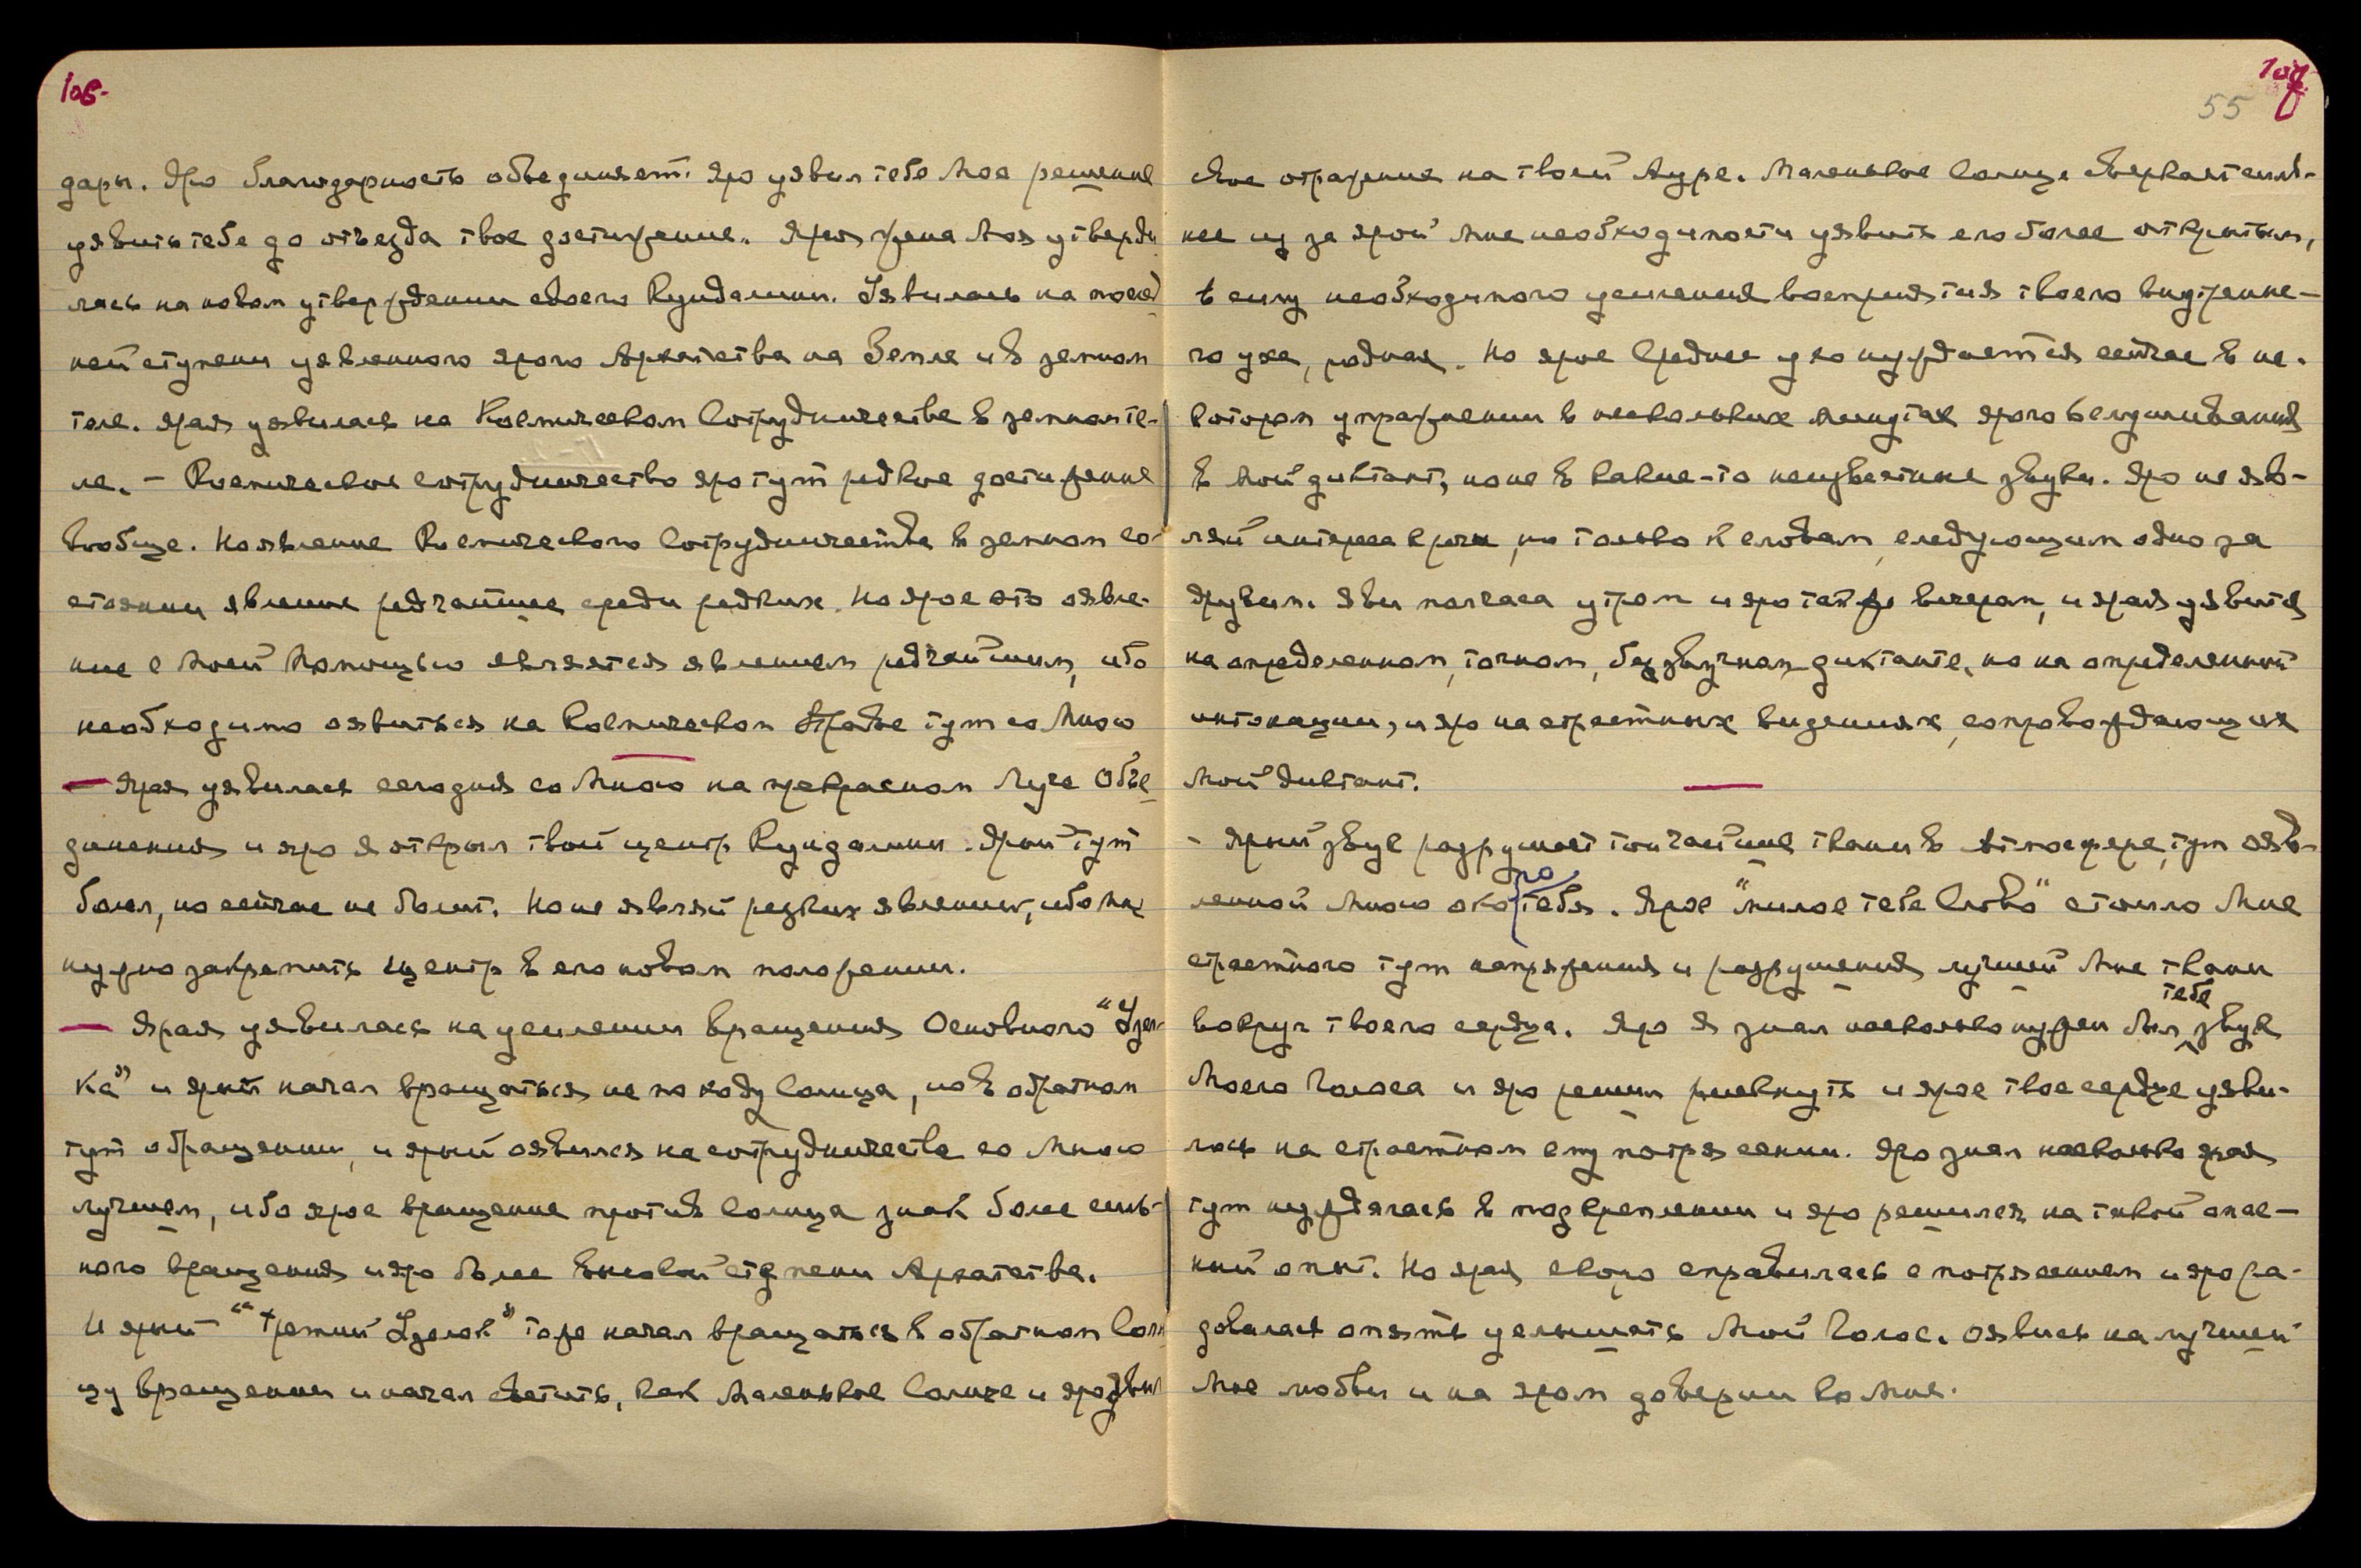 106-
дары. Яро благодарность объединяет. Яро уявил тебе Мое решение
уявить тебе до отъезда твое достижение. Ярая жена Моя утверди
лась на новом утверждении своего Кундалини. Уявилась на послед
ней ступени уявленного ярого Архатства на Земле и в земном
теле. Ярая уявилась на Космическом Сотрудничестве в земном те-
ле. – Космическое сотрудничество яро тут редкое достижение
вообще. Но явление Космического Сотрудничества в земном со-
стоянии явление редчайшее среди редких. Но ярое это оявле-
ние с Моей Помощью является явлением редчайшим, ибо
необходимо оявиться на Космическом Праве тут со Мною
— Ярая уявилась сегодня со Мною на прекрасном Луче Объе
динения и яро Я открыл твой центр Кундалини. Ярый тут
болел, но сейчас не болит. Но не являй резких явлений, ибо Мне
нужно закрепить центр в его новом положении.
— Ярая уявилась на усилении вращения Основного "Узел-
ка" и ярый начал вращаться не по ходу Солнца, но в обратном
тут обращении, и ярый оявился на сотрудничестве со Мною
лучшем, ибо ярое вращение против Солнца знак более силь-
ного вращения и яро более высокой ступени Архатства.
И ярый "третий Узелок" тоже начал вращаться в обратном Солн
цу вращении и начал светить, как Маленькое Солнце и яро
107
55
отражение на твоей Ауре. Маленькое Солнце сверкает силь-
нее из за ярой Мне необходимости уявить его более открытым,
в силу необходимого усиления восприятия твоего внутренне-
го уха, родная. Но ярое Среднее ухо нуждается сейчас в не-
котором упражнении в нескольких минутах ярого вслушивания
в Мой диктант, но не в какие-то неизвестные звуки. Яро не яв-
ляй интереса к речи, но только к словам, следующим одно за
другим. Яви полчаса утром и яро также вечером, и ярая уявится
на определенном, точном, беззвучном диктанте, но на определенной
интонации, и яро на страстных видениях, сопровождающих
Мой диктант.
- Ярый звук разрушает тончайшие ткани в атмосфере, тут ояв-
ленной Мною около тебя. Ярое "милое тебе Слово" стоило Мне
страстного тут напряжения и разрушения лучшей Мне ткани
вокруг твоего сердца. Яро Я знал насколько нужен был тебе звук
Моего Голоса и яро решил рискнуть и ярое твое сердце уяви-
лось на страстном ему потрясении. Яро знал насколько ярая
тут нуждалась в подкреплении и яро решился на такой опас-
ный опыт. Но ярая скоро справилась с потрясением и яро ра-
довалась опять услышать Мой Голос. Оявись на лучшей
Мне любви и на яром доверии ко Мне.